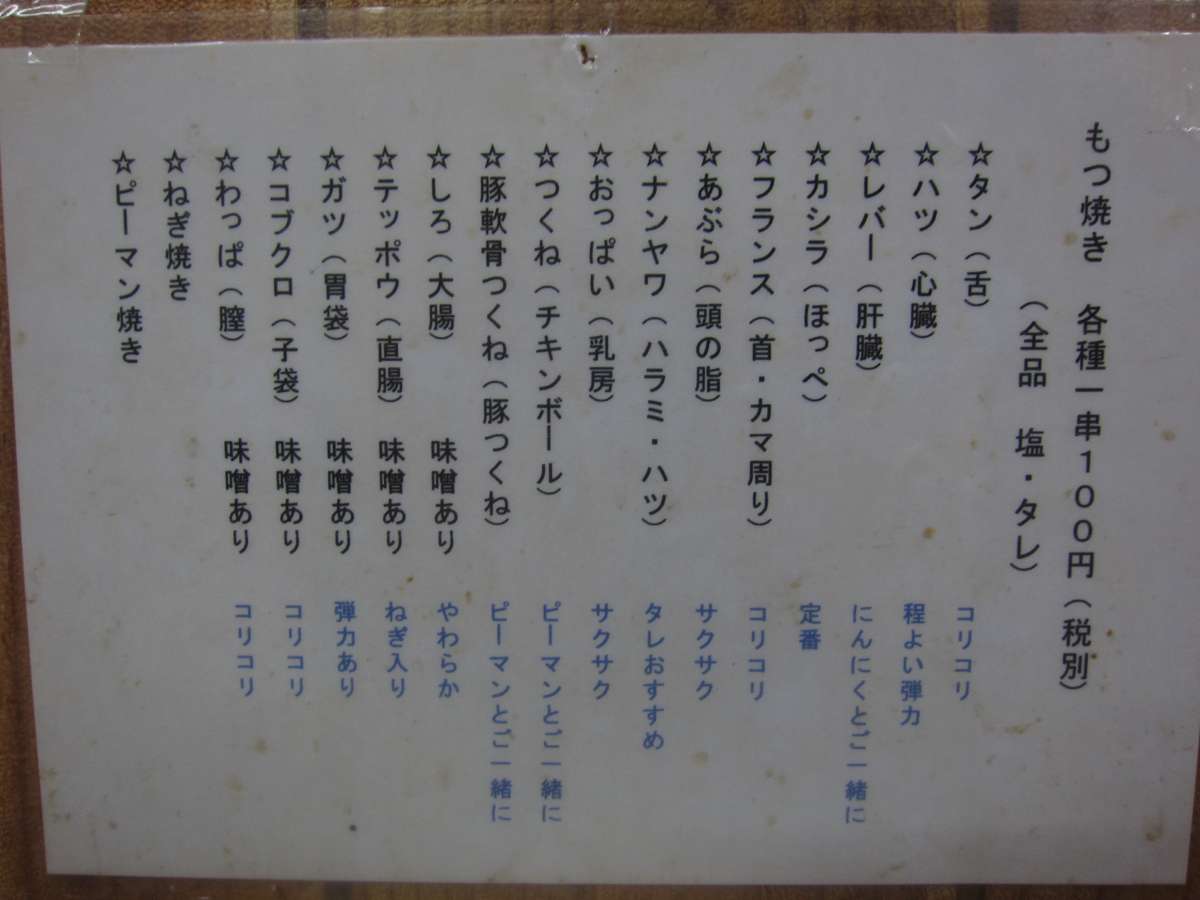 もつ焼き 各種一串100円(税別)
(全品 塩・タレ)
☆タン(舌) コリコリ
☆ハツ(心臓) 程よい弾力
☆レバー(肝臓) にんにくとご一緒に
☆カシラ(ほっぺ) 定番
☆フランス(首・カマ周り) コリコリ
☆あぶら(頭の脂) サクサク
☆ナンヤワ(ハラミ・ハツ) タレおすすめ
☆おっぱい(乳房) サクサク
☆つくね(チキンボール) ピーマンとご一緒に
☆豚軟骨つくね(豚つくね) ピーマンとご一緒に
☆しろ(大腸) 味噌あり やわらか
☆テッポウ(直腸) 味噌あり ねぎ入り
☆ガツ(胃袋) 味噌あり 弾力あり
☆コブクロ(子袋) 味噌あり コリコリ
☆わっぱ(膣) 味噌あり コリコリ
☆ねぎ焼き
☆ピーマン焼き